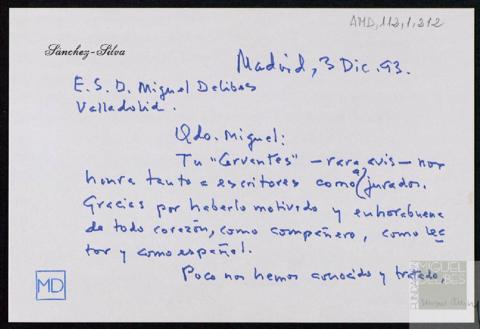 AMD,112,1,212
Sánchez-Silva
Madrid, 3 Dic. 93.
E. S. D. Miguel Delibes
Valladolid.
Qdo. Miguel:
Tu "Cervantes" - rara avis - nos
honra tanto a escritores como a jurados.
Gracias por haberlo motivado y enhorabuena
de todo corazón, como compañero, como lec
tor y como español.
Poco nos hemos conocido y tratado,
MD
FUNDACIÓN
MIGUEL
DELIBES